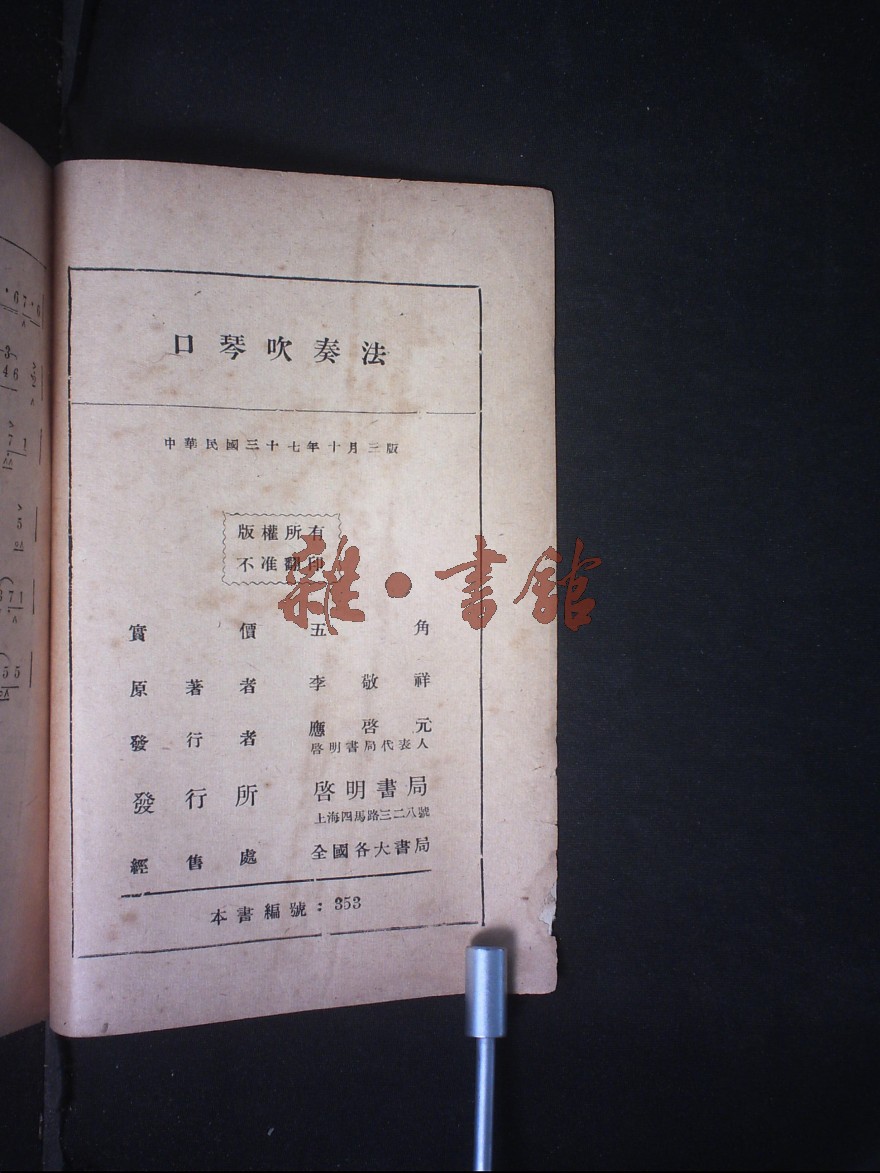 口琴吹奏法
中華民國三十七年十月三版
版權所有
不准翻印
雜·書館
實價五角
原著者 李敬祥
發行者 應啓元
啓明書局代表人
發行所 啓明書局
上海四馬路三二八號
經售處 全國各大書局
本書編號：353